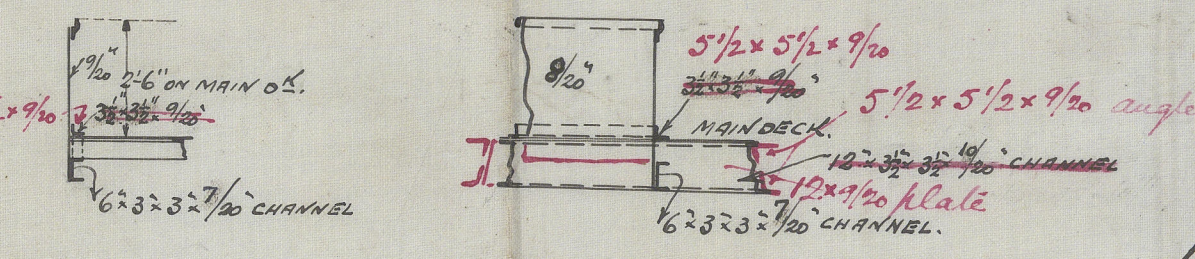 9/20"
2'-6" ON MAIN DK.
× 9/20
3½"×3½"× 9/20"
6"×3"×3"×7/20" CHANNEL
8/20"
5 1/2 × 5 1/2 × 9/20
3½"×3½"× 9/20"
5 1/2 × 5 1/2 × 9/20 angle
MAIN DECK.
12"×3½"×3½"×10/20" CHANNEL
12×9/20 plate
6"×3"×3"×7/20" CHANNEL.